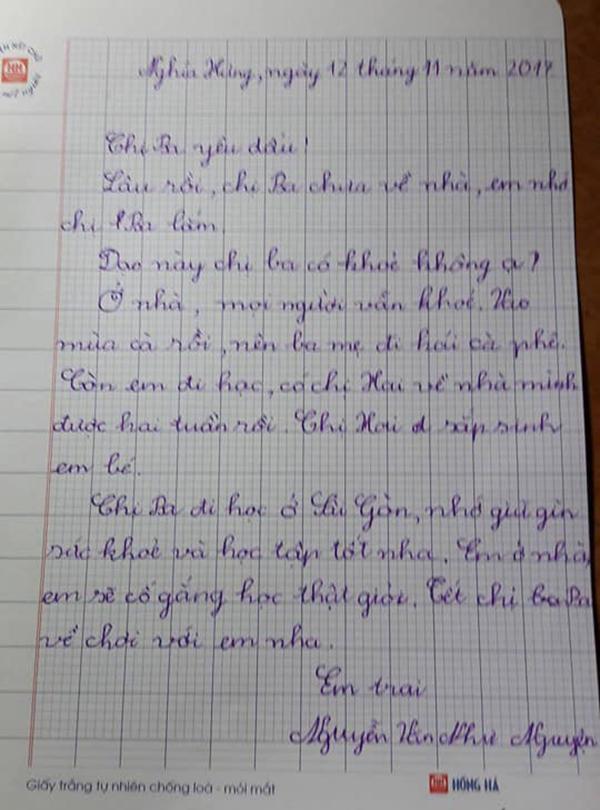 Nghĩa Hưng, ngày 12 tháng 11 năm 2017
Chị Ba yêu dấu!
Lâu rồi, chị Ba chưa về nhà, em nhớ
chị Ba lắm.
Dạo này chị ba có khoẻ không ạ?
Ở nhà, mọi người vẫn khoẻ. Vào
mùa cà rồi, nên ba mẹ đi hái cà phê.
Còn em đi học, có chị Hai về nhà mình
được hai tuần rồi. Chị Hai sắp sinh
em bé.
Chị Ba đi học ở Sài Gòn, nhớ giữ gìn
sức khoẻ và học tập tốt nha. Em ở nhà,
em sẽ cố gắng học thật giỏi. Tết chị ba Ba
về chơi với em nha.
Em trai
Nguyễn Như Nguyện
Giấy trắng tự nhiên chống loá - mỏi mắt
HỒNG HÀ